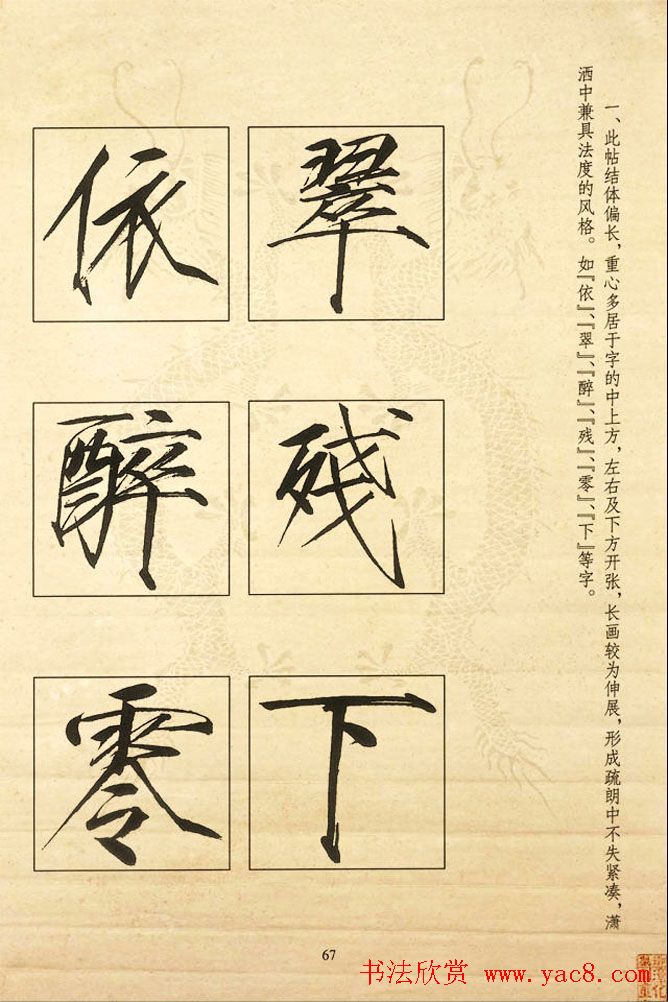 一、此帖结体偏长，重心多居于字的中上方，左右及下方开张，长画较为伸展，形成疏朗中不失紧凑，潇
洒中兼具法度的风格。如『依』、『翠』、『醉』、『残』、『零』、『下』等字。
依 翠
醉 残
零 下
67
书法欣赏 www.yac8.com